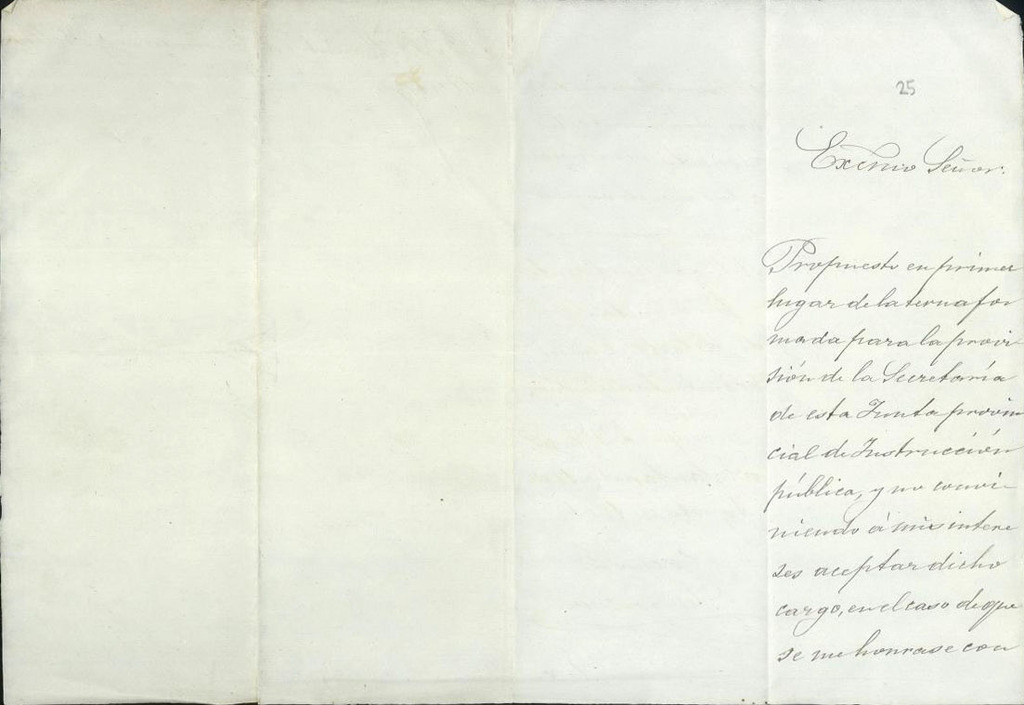 25
Excmo Señor:
Propuesto en primer
lugar de la terna for
mada para la provi
sión de la Secretaría
de esta Junta provin
cial de Instrucción
pública, y no convi
niendo á mis intere
ses aceptar dicho
cargo, en el caso de que
se me honrase con